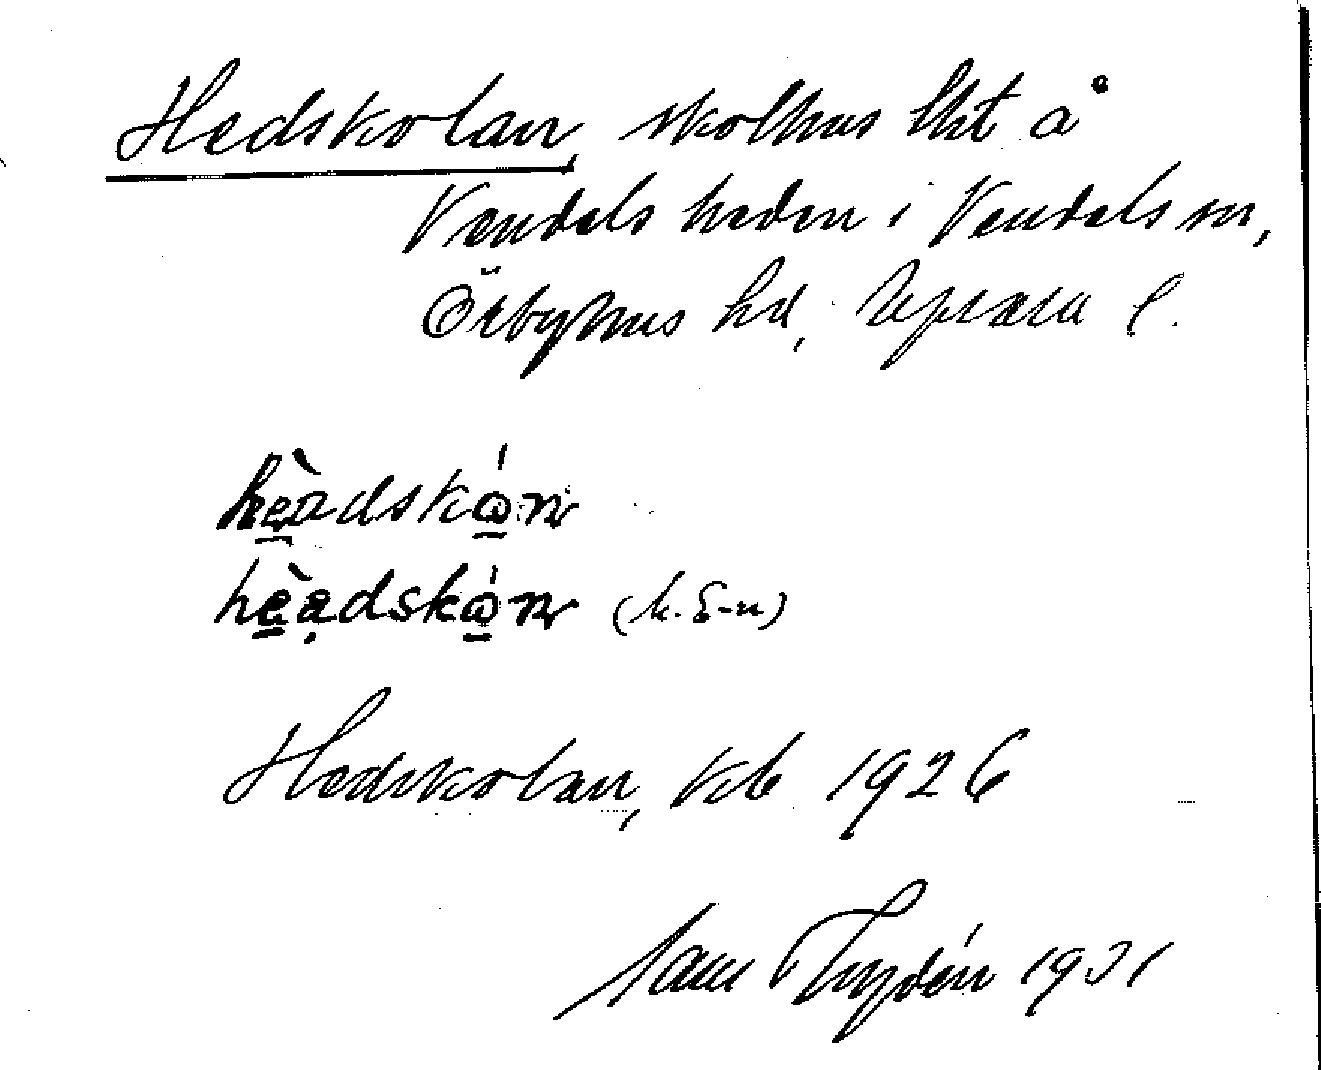 Hedskolan, skolhus lht å
Vendels heden i Vendels sn,
Örbyhus hd, Uppsala l.
hèadskó̱n
hèạdskó̱n
Hedskolan, kb 1926
Thydén 1931